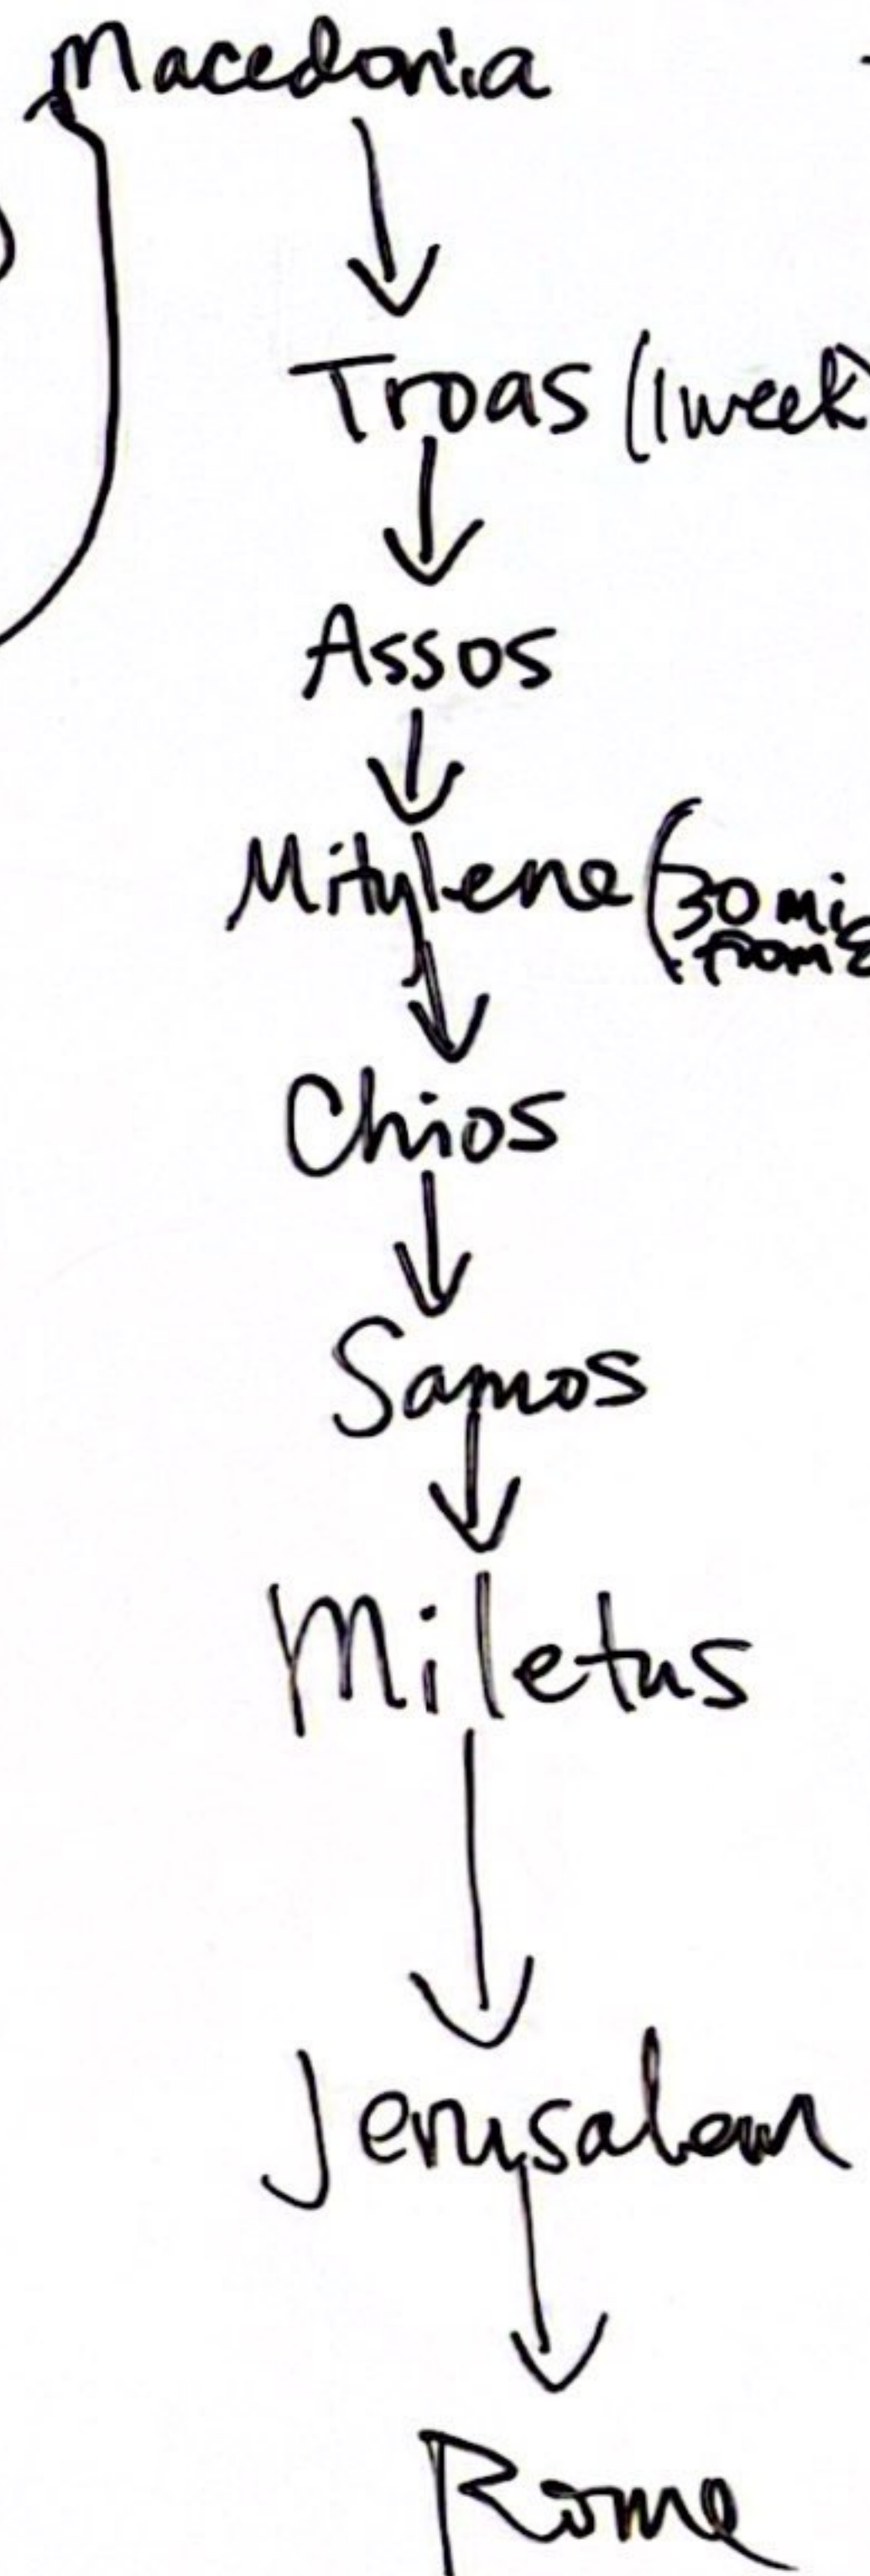 Macedonia
Troas (1 week)
Assos
Mitylene (30 mi
from
Chios
Samos
Miletus
Jerusalem
Rome